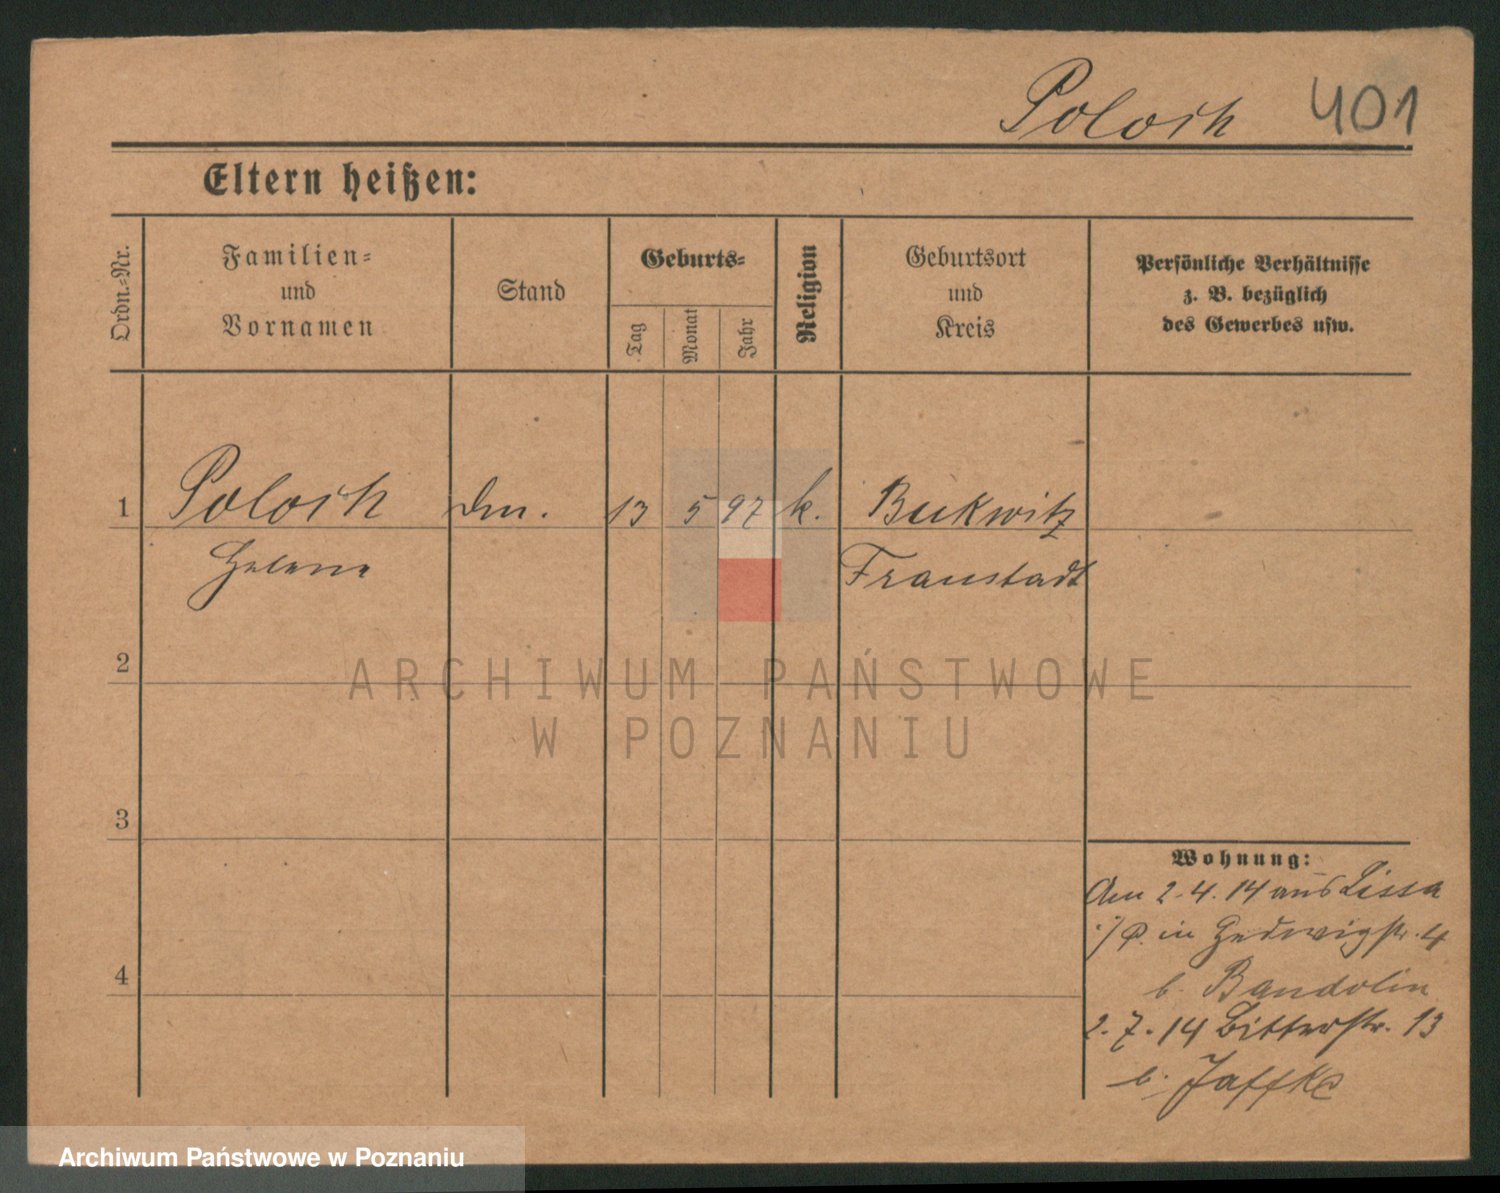 Poloch 401
Eltern heißen:
Ordn.-Nr.
Familien-
und
Vornamen
Stand
Geburts-
Tag
Monat
Jahr
Religion
Geburtsort
und
Kreis
Persönliche Verhältnisse
z. B. bezüglich
des Gewerbes usw.
1 Poloch 13 5 97 k. Bukwitz
Helene Fraustadt
2
3
4
Wohnung:
Am 2.4.14 aus Lissa
in Hedwigstr. 4
b. Bandolin
2.7.14 Bitterstr. 13
b. Jaffke
ARCHIWUM PAŃSTWOWE
W POZNANIU
Archiwum Państwowe w Poznaniu